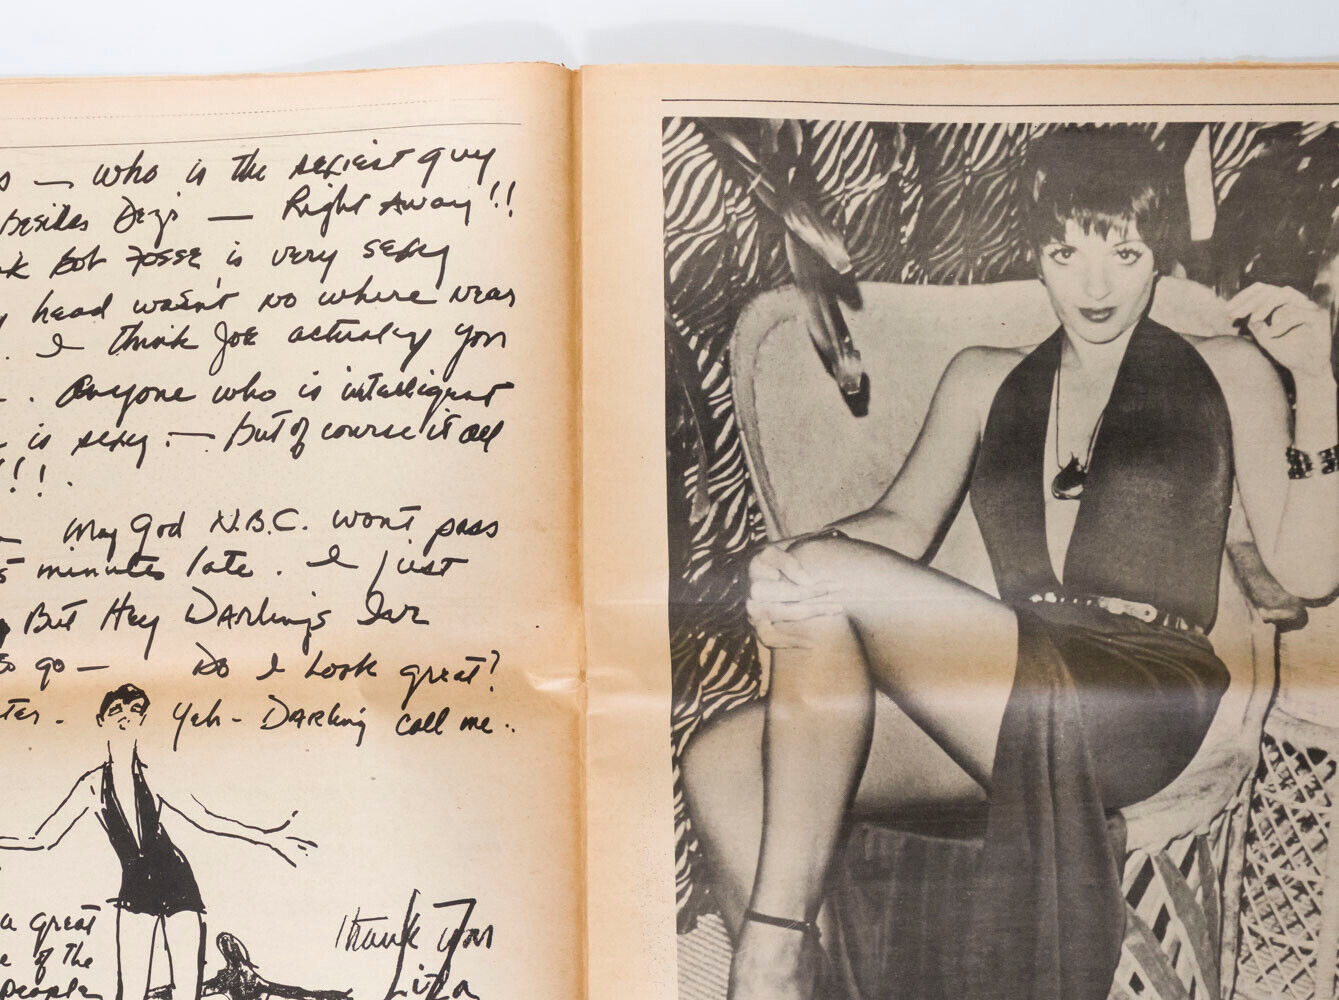 s — who is the sexiest guy
Besides Dezi — Right Away!!
Bob Fosse is very sexy
head wasn't no where near
. I think Joe actually you
. Anyone who is intelligent
is sexy. — But of course it all
!!!
— May God N.B.C. wont pass
5 minutes late. I just
But Hey Darlings Ive
So go — Do I Look great?
. Yeh - Darling call me.
a great
of the
people
Thank You
Liza